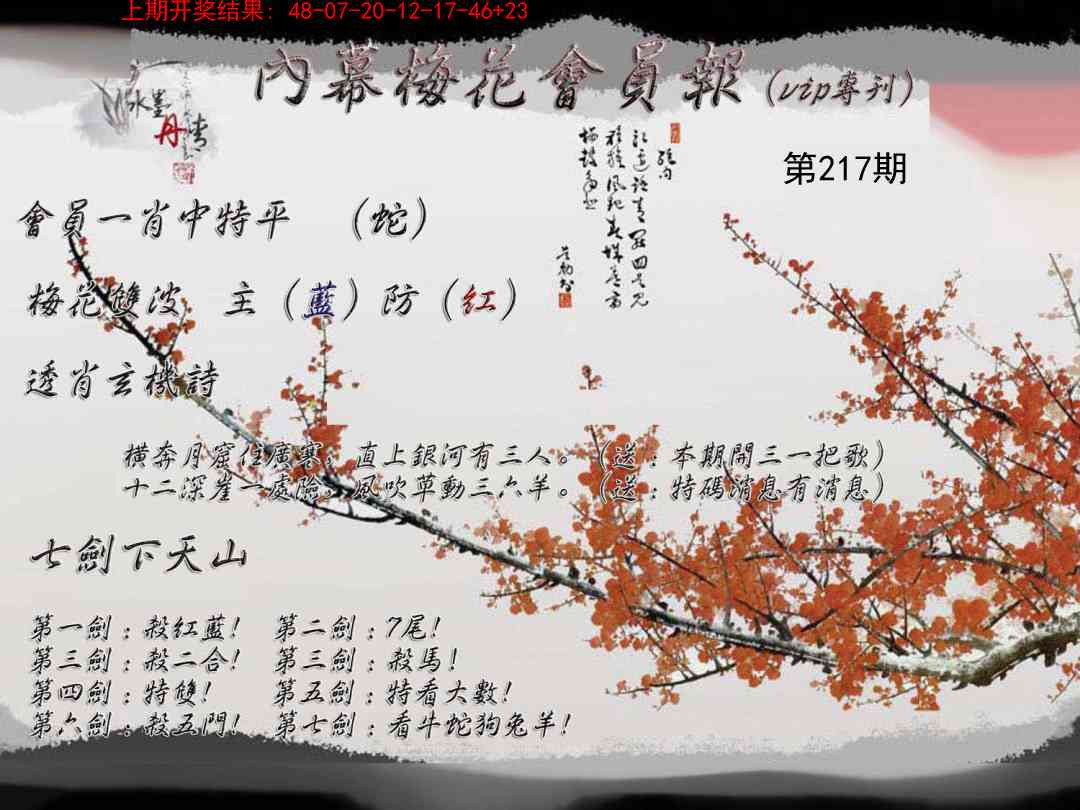 上期开奖结果: 48-07-20-12-17-46+23
內幕梅花會員報(vip專刊)
水墨
丹情
第217期
會員一肖中特平 (蛇)
梅花雙波 主(藍)防(紅)
透肖玄機詩
橫奔月窟住廣寒，直上銀河有三人。(送：本期開三一把歌)
十二深崖一處險，風吹草動三六羊。(送：特碼消息有消息)
七劍下天山
第一劍：殺紅藍! 第二劍：7尾!
第三劍：殺二合! 第三劍：殺馬!
第四劍：特雙! 第五劍：特看大數!
第六劍：殺五門! 第七劍：看牛蛇狗兔羊!